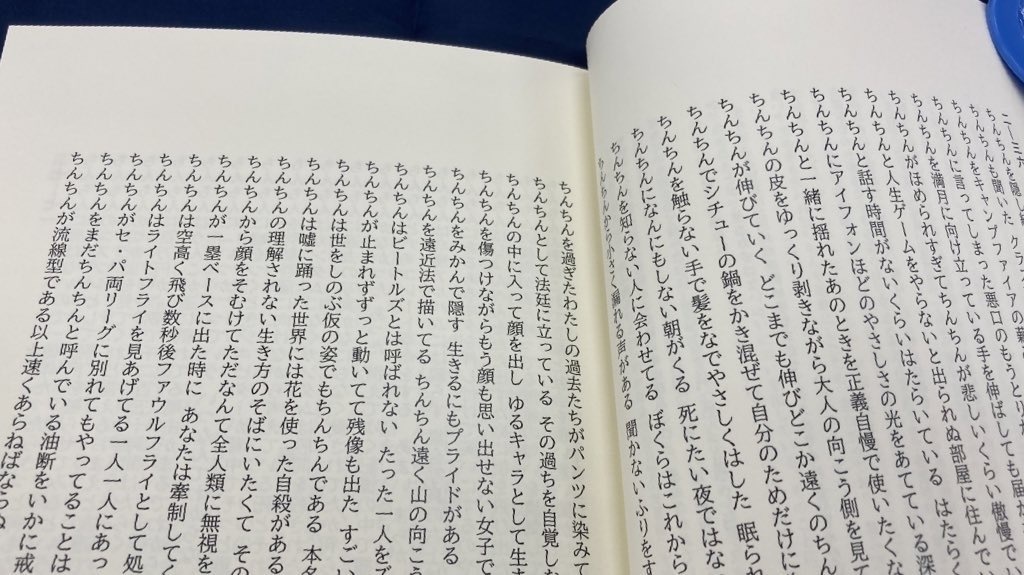 ちんちんも聞いた クラ
ちんちんをキャンプファイアの薪
ちんちんに言ってしまった悪口のもうとりか
ちんちんを満月に向け立っている手を伸ばしても届か
ちんちんがほめられすぎてちんちんが悲しいくらい傲慢で
ちんちんと人生ゲームをやらないと出られぬ部屋に住んでい
ちんちんと話す時間がないくらいはたらいている はたらく
ちんちんにアイフォンほどのやさしさの光をあてている深
ちんちんと一緒に揺れたあのときを正義自慢で使いたくな
ちんちんの皮をゆっくり剥きながら大人の向こう側を見て
ちんちんが伸びていく どこまでも伸びどこか遠くのちん
ちんちんでシチューの鍋をかき混ぜて自分のためだけに
ちんちんを触らない手で髪をなでやさしくはした 眠ら
ちんちんになんにもしない朝がくる 死にたい夜ではな
ちんちんを知らない人に会わせてる ぼくらはこれから
漏れる声がある 聞かないふりをす
ちんちんを過ぎたわたしの過去たちがパンツに染みて
ちんちんとして法廷に立っている その過ちを自覚しな
ちんちんの中に入って顔を出し ゆるキャラとして生ま
ちんちんを傷つけながらもう顔も思い出せない女子で
ちんちんをみかんで隠す 生きるにもプライドがある
ちんちんを遠近法で描いてる ちんちん遠く山の向こう
ちんちんはビートルズとは呼ばれない たった一人を
ちんちんが止まれずずっと動いてて残像も出た すごい
ちんちんは世をしのぶ仮の姿でもちんちんである 本名
ちんちんは嘘に踊った世界には花を使った自殺がある
ちんちんの理解されない生き方のそばにいたくて その
ちんちんから顔をそむけてただなんて全人類に無視を
ちんちんが一塁ベースに出た時に あなたは牽制してく
ちんちんは空高く飛び数秒後ファウルフライとして処
ちんちんはライトフライを見あげてる一人一人にあっ
ちんちんがセ・パ両リーグに別れてもやってることは
ちんちんをまだちんちんと呼んでいる油断をいかに戒
ちんちんが流線型である以上速くあらねばならぬ